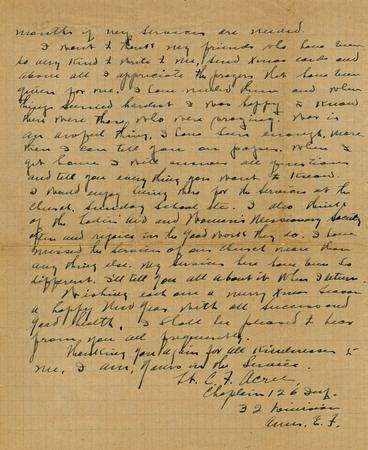 months of my services are needed.
I want to thank my friends who have been
so very kind to write to me, send Xmas cards and
above all I appreciate the prayers that have been
given for me. I have needed them and when
things seemed hardest I was happy to know
there were those who were praying. War is
an awful thing, I have seen enough, more
than I can tell you on paper. When I
get home I will answer all questions
and tell you everything you want to know.
I would enjoy being there for the services at the
Church, Sunday School etc. I also think
of the Ladies Aid and Woman's Missionary Society
often and rejoice in the good work they do. I have
missed the services of our Church more than
any thing else. My services here have been so
different. I'll tell you all about it when I return.
Wishing each one a merry Xmas season
a happy New Year with all success and
good health. I shall be pleased to hear
from you all frequently.
Thanking you again for all kindnesses to
me, I am, Yours in the Service.
Lt. C. F.
Chaplain 126 Inf.
32 Division
Amer. E. F.